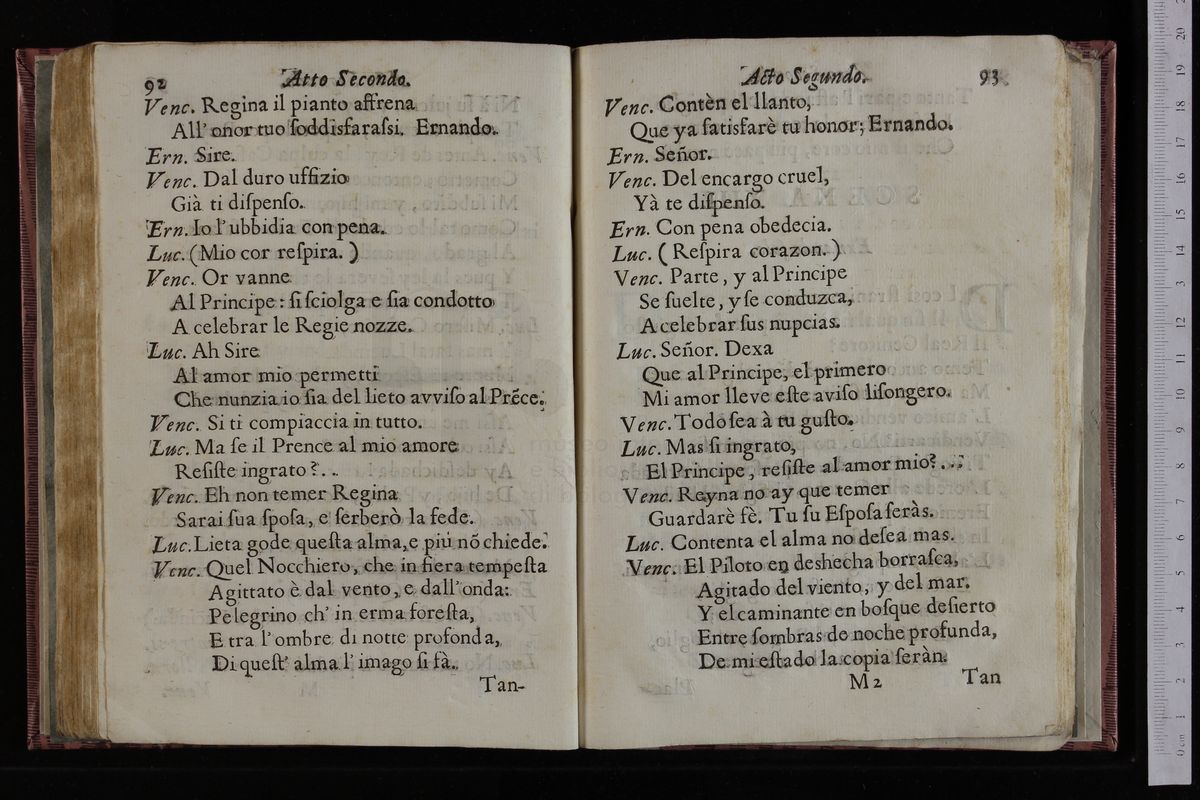 92 Atto Secondo.
Venc. Regina il pianto affrena
All' onor tuo ſoddisfaraſsi. Ernando.
Ern. Sire.
Venc. Dal duro uffizio
Già ti diſpenſo.
Ern. Io l' ubbidia con pena.
Luc. (Mio cor reſpira.)
Venc. Or vanne
Al Principe: ſi ſciolga e ſia condotto
A celebrar le Regie nozze.
Luc. Ah Sire
Al amor mio permetti
Che nunzia io ſia del lieto avviſo al Prẽce.
Venc. Si ti compiaccia in tutto.
Luc. Ma ſe il Prence al mio amore
Reſiſte ingrato?...
Venc. Eh non temer Regina
Sarai ſua ſpoſa, e ſerberò la fede.
Luc. Lieta gode queſta alma, e più nõ chiede.
Venc. Quel Nocchiero, che in fiera tempeſta
Agittato è dal vento, e dall' onda:
Pelegrino ch' in erma foreſta,
E tra l' ombre di notte profonda,
Di queſt' alma l' imago ſi fà.
Tan-
Acto Segundo. 93
Venc. Contèn el llanto,
Que ya ſatisfarè tu honor; Ernando.
Ern. Señor.
Venc. Del encargo cruel,
Yà te diſpenſo.
Ern. Con pena obedecia.
Luc. (Reſpira corazon.)
Venc. Parte, y al Principe
Se ſuelte, y ſe conduzca,
A celebrar ſus nupcias.
Luc. Señor. Dexa
Que al Principe, el primero
Mi amor lleve eſte aviſo liſongero.
Venc. Todo ſea à tu guſto.
Luc. Mas ſi ingrato,
El Principe, reſiſte al amor mio?...
Venc. Reyna no ay que temer
Guardarè fè. Tu ſu Eſpoſa ſeràs.
Luc. Contenta el alma no deſea mas.
Venc. El Piloto en deshecha borraſca,
Agitado del viento, y del mar.
Y el caminante en boſque deſierto
Entre ſombras de noche profunda,
De mi eſtado la copia ſeràn.
M 2 Tan